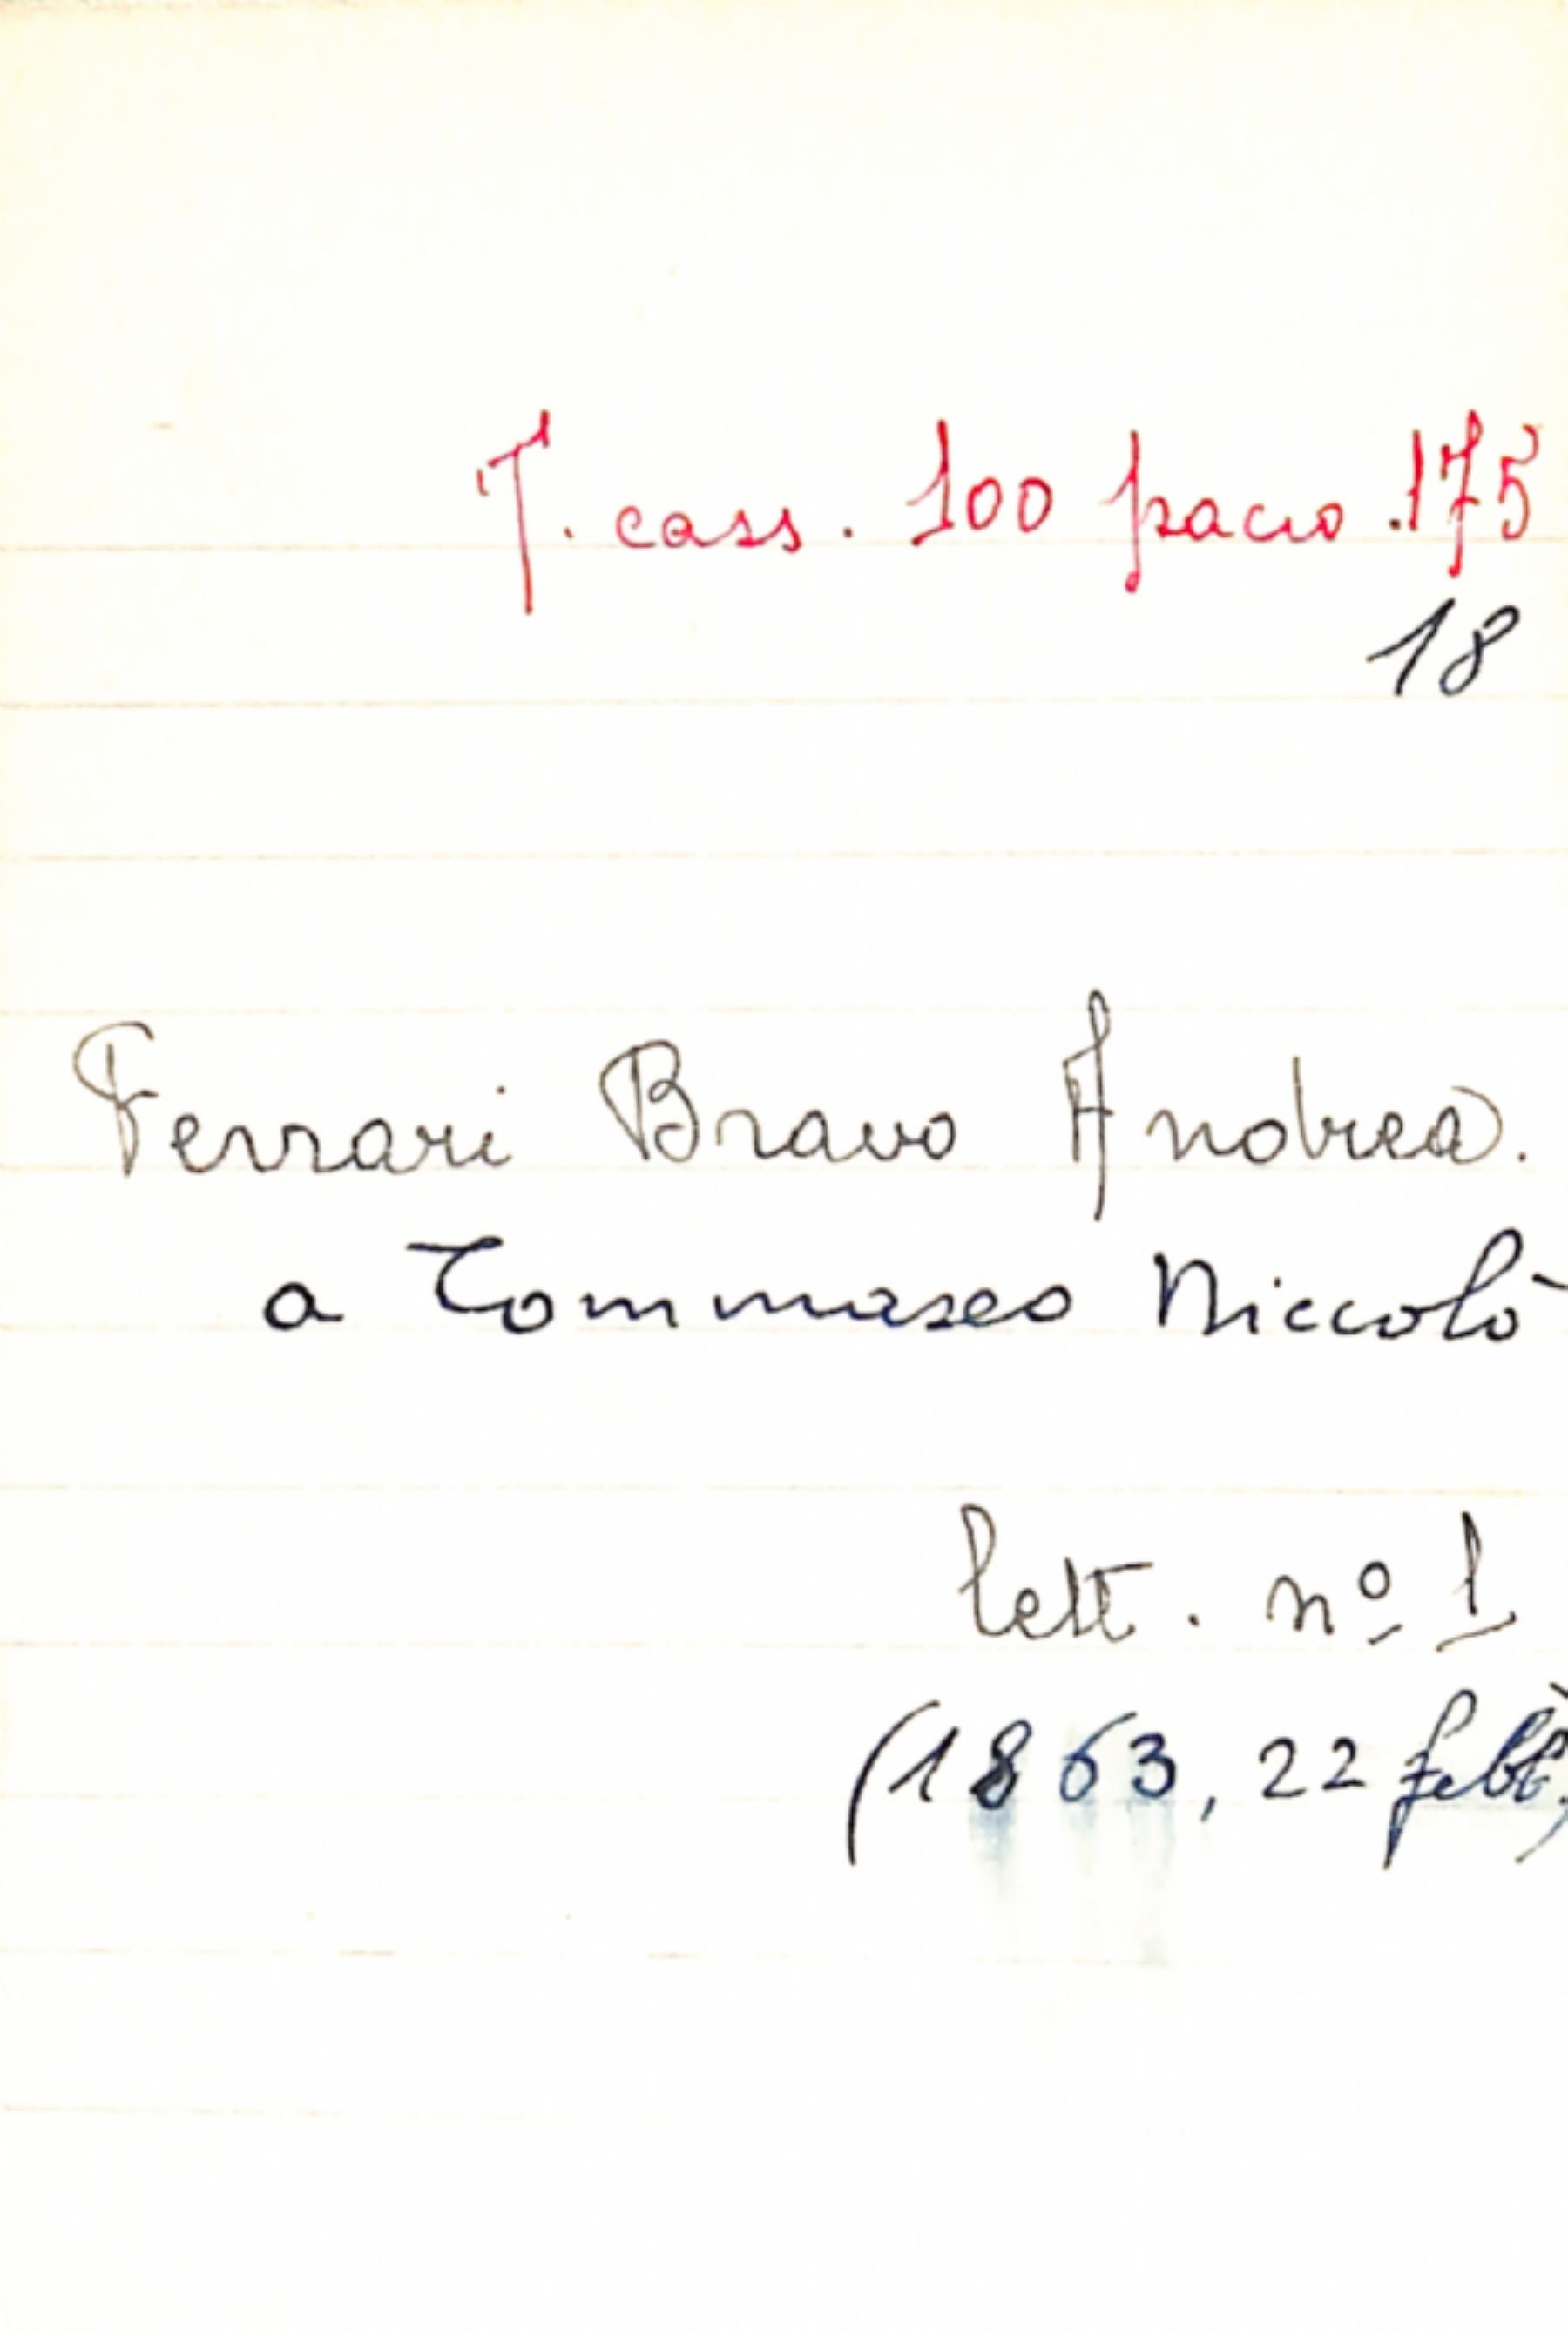 T. cass. 100 pacco .175
18
Ferrari Bravo Andrea.
a Tommaseo Niccolò
lett. nº 1
(1863, 22 febb.)